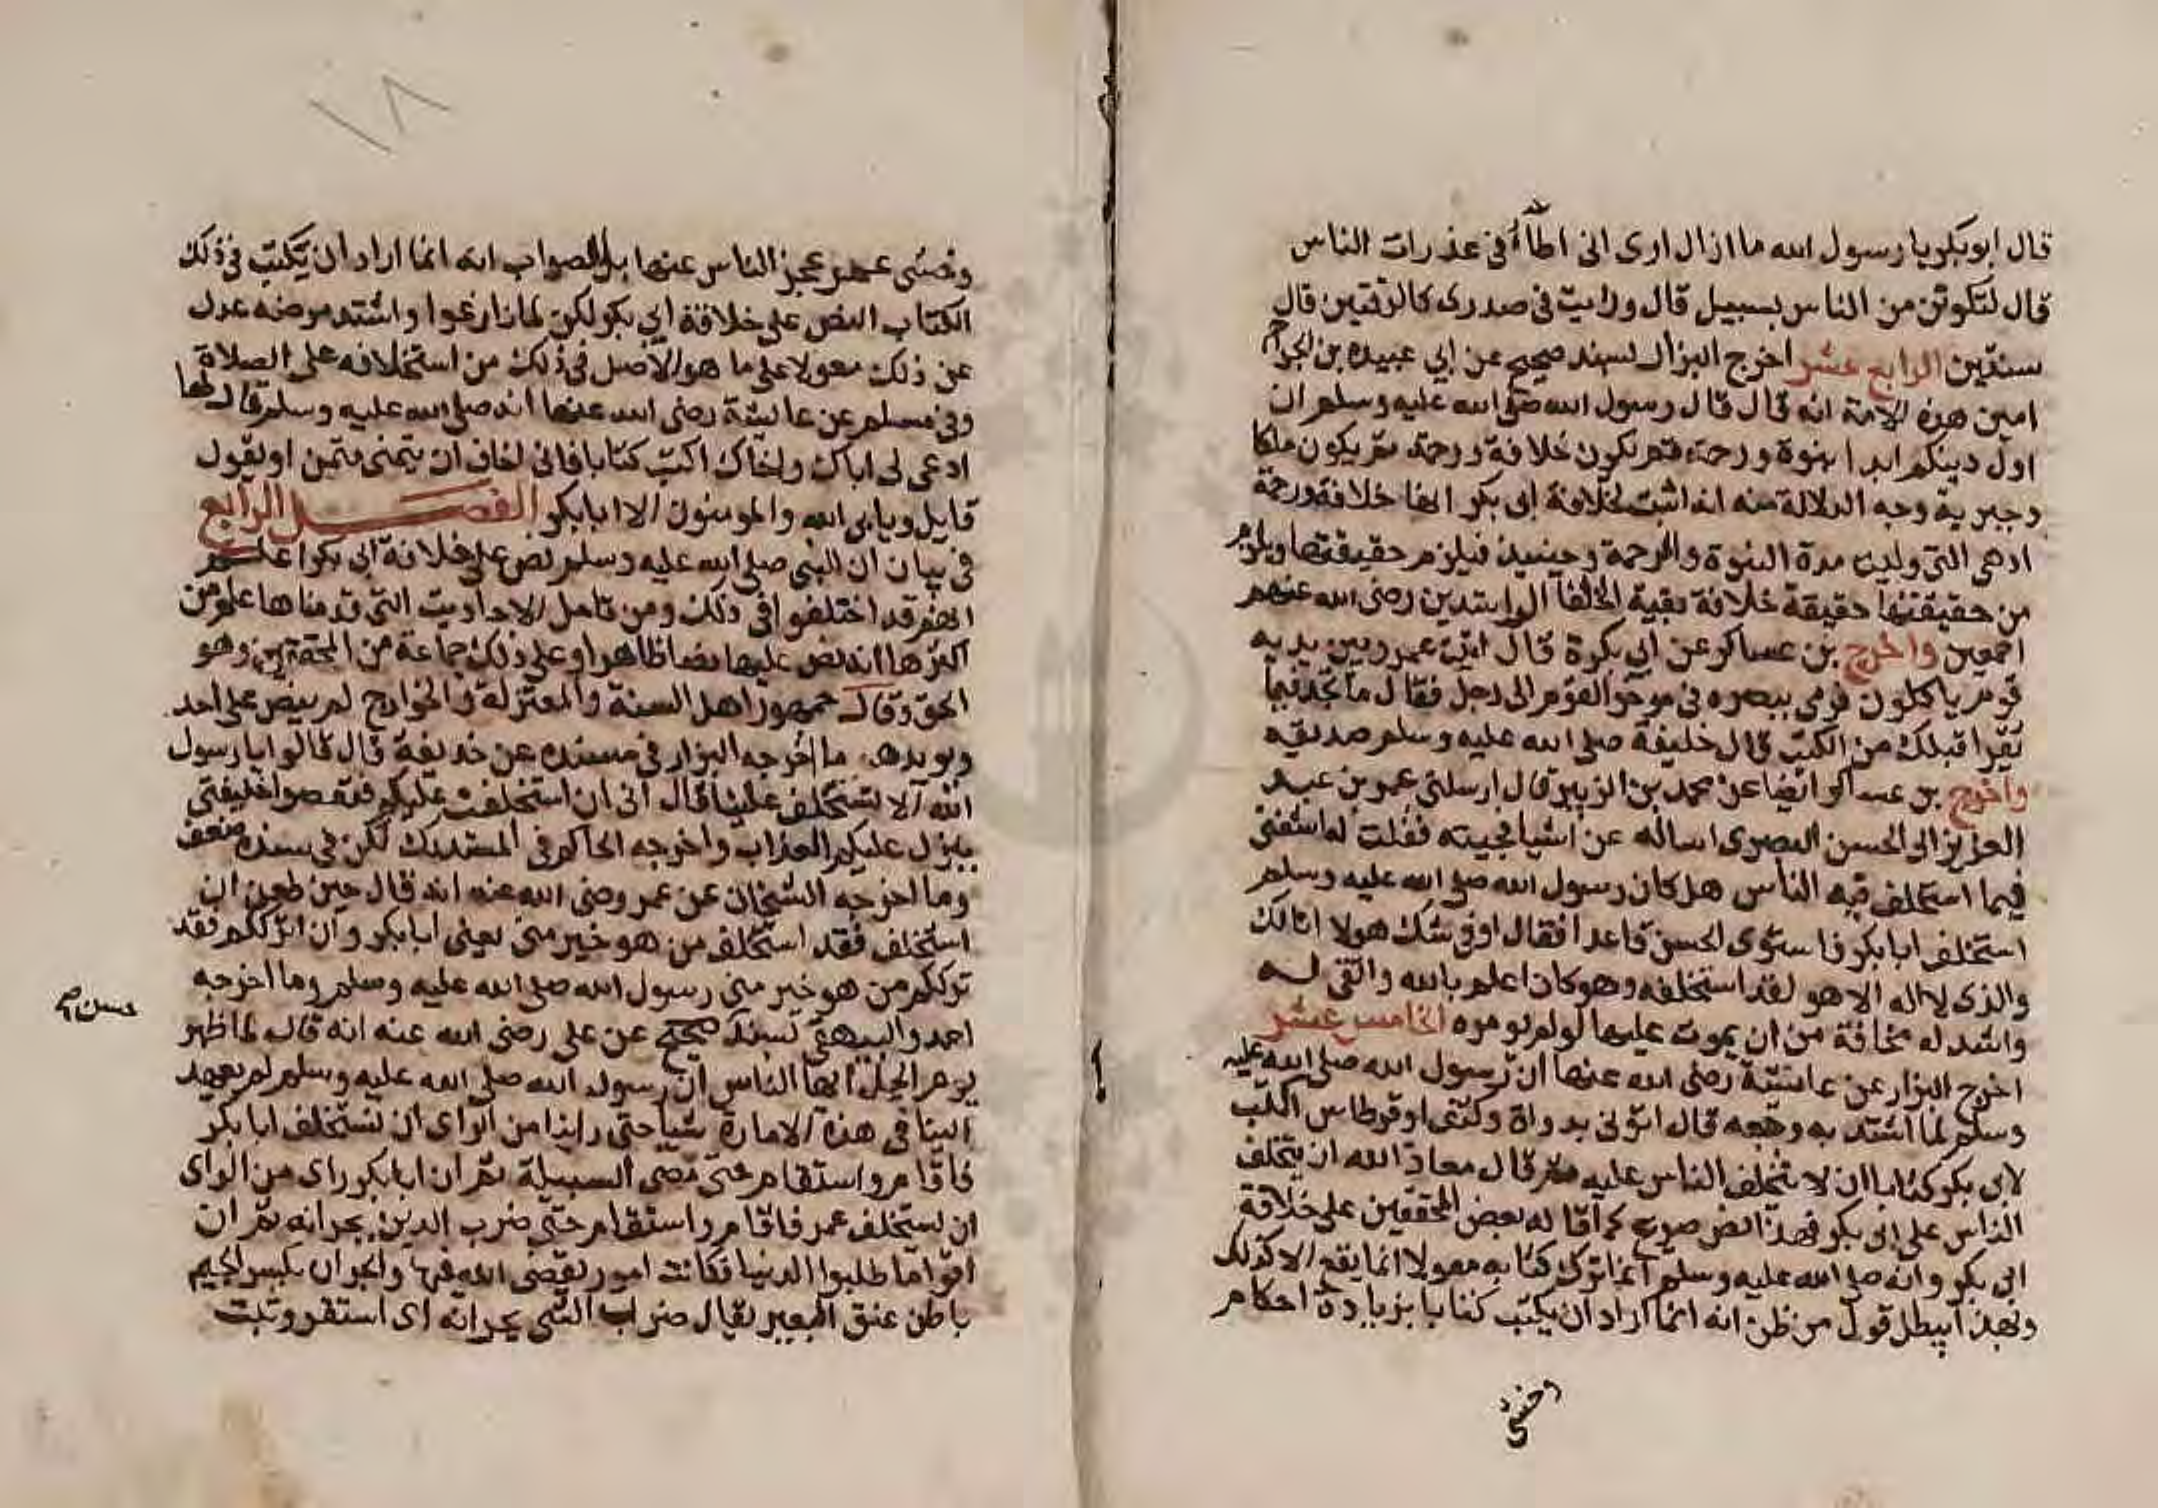 قال ابوبكر يا رسول الله ما ازال ارى انى اطأ فى عذرات الناس
قال لتكونن من الناس بسبيل قال ورايت فى صدرى كالرقمتين قال
سنتين الرابع عشر اخرج البزار بسند صحيح عن ابي عبيده بن الجراح
امين هذه الامة انه قال قال رسول الله صلى الله عليه وسلم ان
اول دينكم بدا نبوة ورحمة ثم تكون خلافة ورحمة ثم يكون ملكا
وجبرية وجه الدلالة منه انه اثبت لخلافة ابى بكر انها خلافة ورحمة
اذ هى التى وليت مدة النبوة والرحمة وحينيذ فيلزم حقيقتها ويلزم
من حقيقتها حقيقة خلافة بقية الخلفا الراشدين رضى الله عنهم
اجمعين واخرج بن عساكر عن ابي بكرة قال اتيت عمر وبين يديه
قوم ياكلون فرمى ببصره فى موخر القوم الى رجل فقال ما تجد فيما
تقرا قبلك من الكتب قال خليفة صلى الله عليه وسلم صديقه
واخرج بن عساكر ايضا عن محمد بن الزبير قال ارسلنى عمر بن عبد
العزيز الى الحسن البصرى اساله عن اشيا فجيته فقلت له اشفنى
فيما اختلف فيه الناس هل كان رسول الله صلى الله عليه وسلم
استخلف ابا بكر فاستوى الحسن قاعدا فقال اوفى شك هو لا ابالك
والذى لا اله الا هو لقد استخلفه وهو كان اعلم بالله واتقى له
واشد له مخافة من ان يموت عليها لو لم يومره الخامس عشر
اخرج البزار عن عائشة رضى الله عنها ان رسول الله صلى الله عليه
وسلم لما اشتد به وجعه قال ايتونى بدواة وكتف او قرطاس اكتب
لابى بكر كتابا ان لا تختلف الناس عليه ثم قال معاذ الله ان يختلف
الناس على ابى بكر فهذا نص صريح كما قاله بعض المحققين على خلافة
ابى بكر وانه صلى الله عليه وسلم انما ترك كتابه معولا انما يقع الا كذلك
وبهذا يبطل قول من ظن انه انما اراد ان يكتب كتابا بزيادة احكام
وخشى
١٨
وخشى عمر عجز الناس عنها بل الصواب انه انما اراد ان يكتب فى ذلك
الكتاب النص على خلافة ابى بكر لكن لما تنازعوا واشتد مرضه عدل
عن ذلك معولا على ما هو الاصل فى ذلك من استخلافه على الصلاة
وفى مسلم عن عائشة رضى الله عنها انه صلى الله عليه وسلم قال لها
ادعى لى اباك واخاك اكتب كتابا فانى اخاف ان يتمنى متمن او يقول
قايل ويابى الله والمومنون الا ابا بكر الفصل الرابع
فى بيان ان النبى صلى الله عليه وسلم نص على خلافة ابى بكر اعلم
انهم قد اختلفوا فى ذلك ومن تامل الاحاديث التى قدمناها علم من
اكثرها انه نص عليها نصا ظاهرا وعلى ذلك جماعة من المحققين وهو
الحق وقال جمهور اهل السنة والمعتزلة والخوارج لم ينص على احد
ويويدهم ما اخرجه البزار فى مسنده عن حذيفة قال قالوا يا رسول
الله الا تستخلف علينا قال انى ان استخلفت عليكم فتعصوا خليفتى
ينزل عليكم العذاب واخرجه الحاكم فى المستدرك لكن فى سنده ضعف
وما اخرجه الشيخان عن عمر رضى الله عنه انه قال حين طعن ان
استخلف فقد استخلف من هو خير منى يعنى ابا بكر وان اترككم فقد
ترككم من هو خير منى رسول الله صلى الله عليه وسلم وما اخرجه
احمد والبيهقى بسند صحيح عن على رضى الله عنه انه قال لما ظهر
حسن
يوم الجمل ايها الناس ان رسول الله صلى الله عليه وسلم لم يعهد
الينا فى هذه الامارة شيا حتى راينا من الراى ان نستخلف ابا بكر
فاقام واستقام حتى مضى لسبيله ثم ان ابا بكر راى من الراى
ان يستخلف عمر فاقام واستقام حتى ضرب الدين بجرانه ثم ان
اقواما طلبوا الدنيا فكانت امور يقضى الله فيها والجران بكسر الجيم
باطن عنق البعير يقال ضرب الشى بجرانه اى استقر وثبت